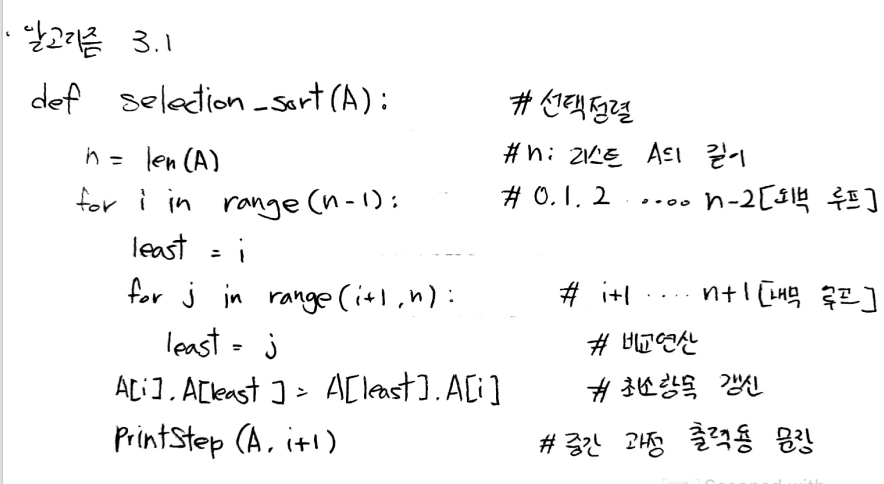 · 알고리즘 3.1
def selection_sort(A): # 선택정렬
n = len(A) #n: 리스트 A의 길이
for i in range(n-1): # 0.1.2 ..... n-2[외부 루프]
least = i
for j in range(i+1,n): # i+1 .... n+1[내부 루프]
least = j # 비교연산
A[i].A[least] = A[least].A[i] # 최소항목 갱신
printStep (A, i+1) # 중간 과정 출력용 문장